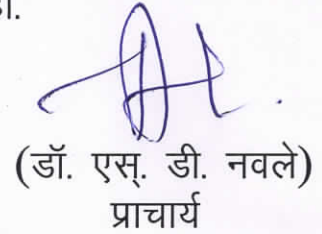 (डॉ. एस्. डी. नवले)
प्राचार्य